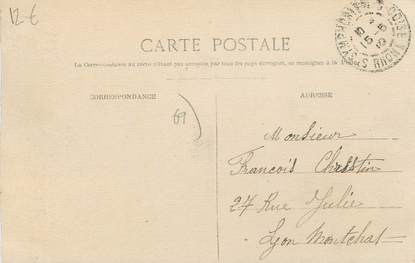 12 €
CARTE POSTALE
La Correspondance au recto n'étant pas acceptée par tous les pays étrangers, se renseigner à la Poste
CORRESPONDANCE
ADRESSE
69
Monsieur
François Chrestin
27 Rue Julie
Lyon Montchat